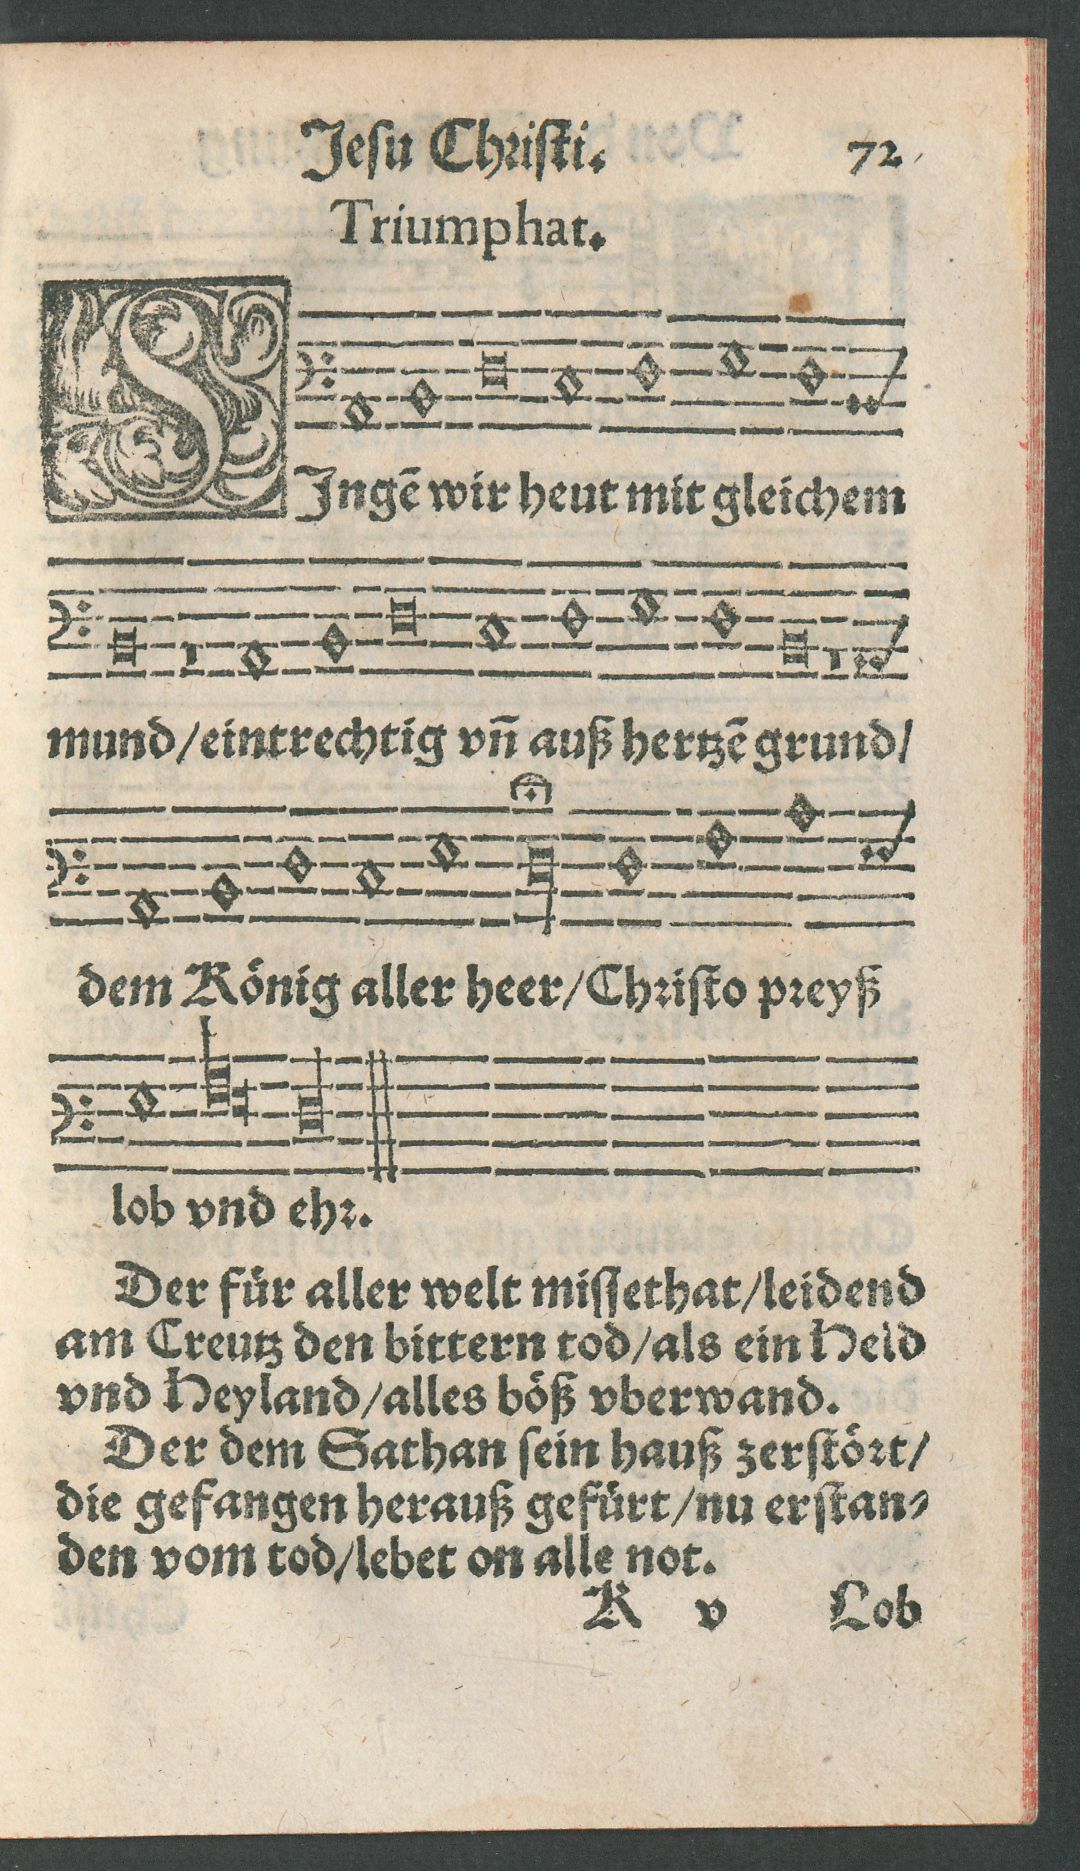 Jesu Christi. 72
Triumphat.
SJngē wir heut mit gleichem
mund/eintrechtig vn̄ auß hertzē grund/
dem König aller heer/Christo preyß
lob vnd ehr.
Der für aller welt missethat/leidend
am Creutz den bittern tod/als ein Held
vnd Heyland/alles böß vberwand.
Der dem Sathan sein hauß zerstört/
die gefangen herauß gefürt/nu erstan⸗
den vom tod/lebet on alle not.
K v Lob